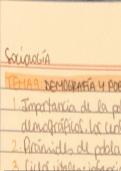 Sociología
TEMA 9: DEMOGRAFÍA Y POB
1. Importancia de la po
demográficos. los cen
2. Pirámides de pobla
3.